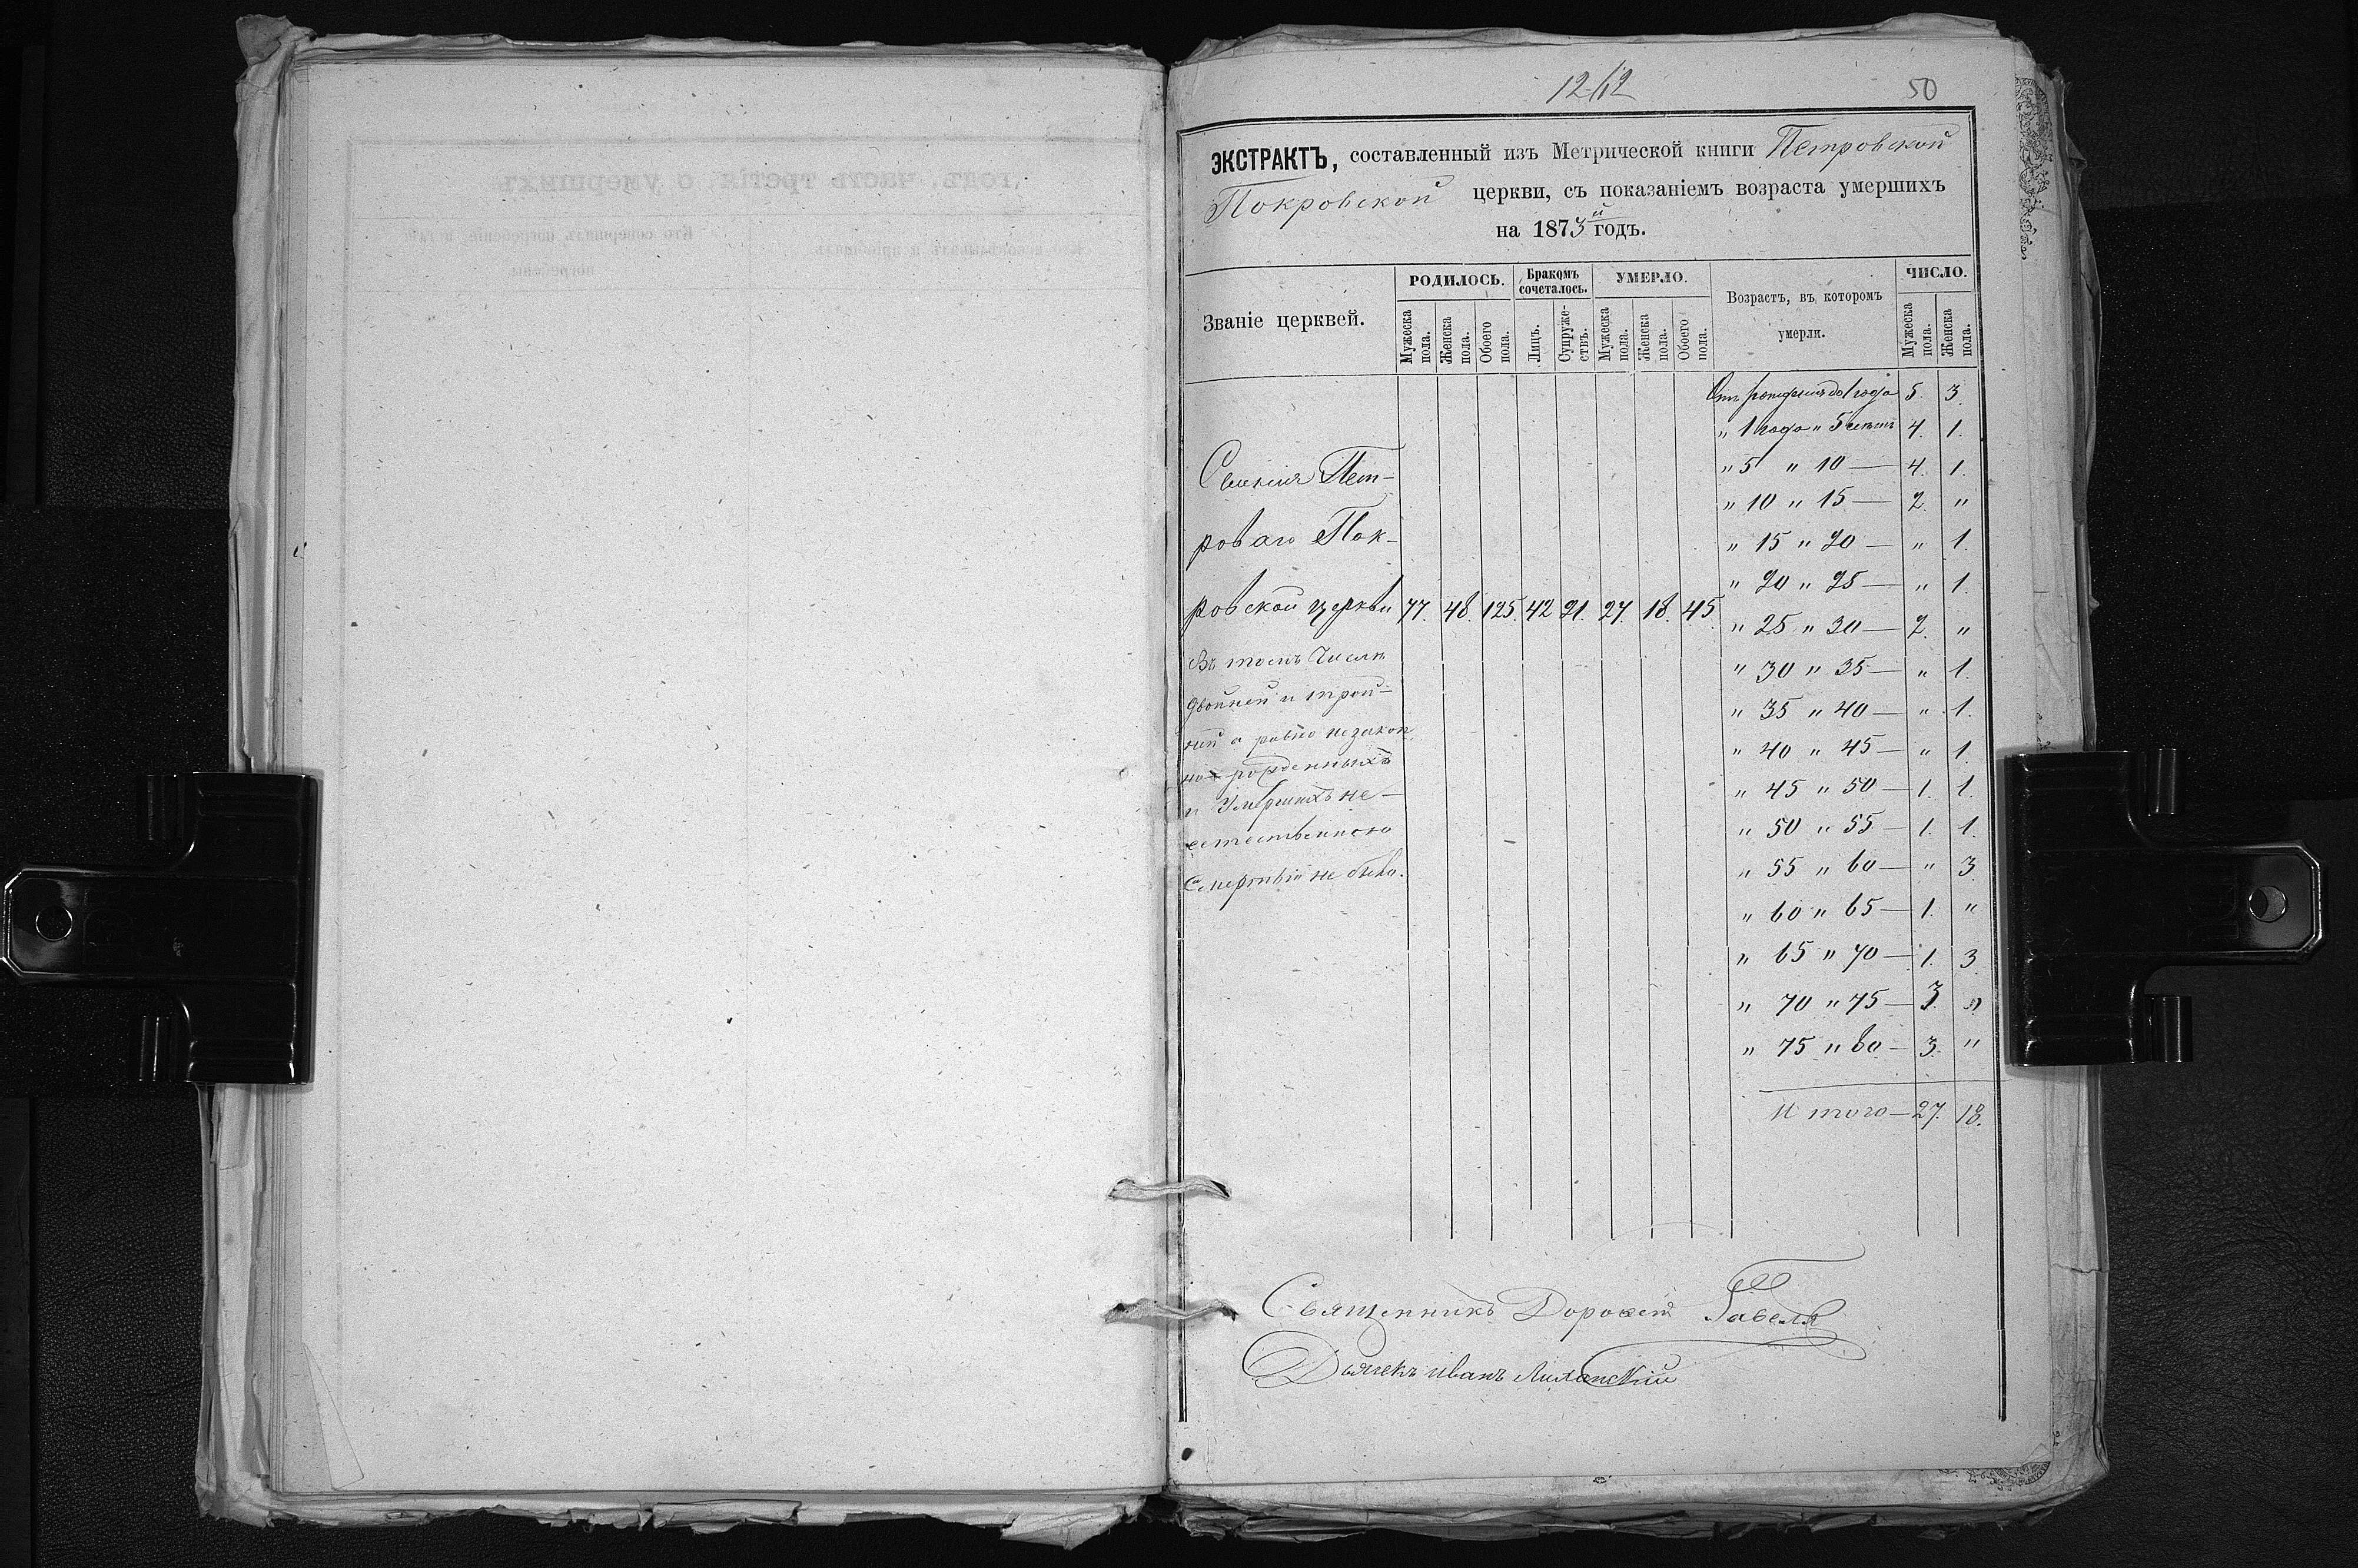 12 12
50
ЭКСТРАКТЪ, составленный изъ Метрической книги Петровской
Покровской церкви, съ показаніемъ возраста умершихъ
на 1873й годъ.
Званіе церквей.
РОДИЛОСЬ.
Бракомъ сочеталось.
УМЕРЛО.
Возрастъ, въ которомъ умерли.
ЧИСЛО.
Мужеска пола. Женска пола. Обоего пола. Лицъ. Супружествъ. Мужеска пола. Женска пола. Обоего пола. Мужеска пола. Женска пола.
Отъ рожденія до 1 года 5. 3.
" 1 года " 5 лѣтъ 4. 1.
" 5 " 10 — 4. 1.
" 10 " 15 — 2. "
" 15 " 20 — " 1.
" 20 " 25 — " 1.
" 25 " 30 — 2. "
" 30 " 35 — " 1.
" 35 " 40 — " 1.
" 40 " 45 — " 1.
" 45 " 50 — 1. 1.
" 50 " 55 — 1. 1.
" 55 " 60 — " 3.
" 60 " 65 — 1. "
" 65 " 70 — 1. 3.
" 70 " 75 — 3. "
" 75 " 80 — 3. "
Итого — 27. 18.
Селенія Пет-
роваго Пок-
ровской церкви 77. 48. 125. 42 21. 27. 18. 45.
Въ томъ числѣ
двойней и трой-
ней а равно незакон
но рожденныхъ
и умершихъ не-
естественною
смертью не было.
Священникъ Дорофей
Дьячекъ Иванъ
годъ, часть третія, о умершихъ
Кто совершалъ погребеніе, и гдѣ погребены
Кто исповѣдывалъ и пріобщалъ